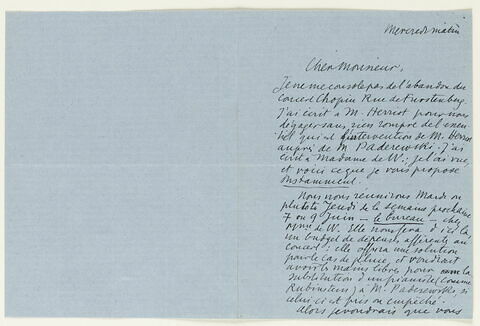 Mercredi matin
Cher Monsieur,
Je ne me console pas de l'abandon du
Concert Chopin Rue de Furstenberg.
J'ai écrit à M. Herriot pour nous
dégager sans rien rompre de l'essen
tiel qui est l'intervention de M. Herriot
auprès de M. Paderewski. J'ai
écrit à Madame de W.; je l'ai vue,
et voici ce que je vous propose
instamment.
Nous nous réunirons Mardi ou
plutôt Jeudi de la semaine prochaine
7 ou 9 Juin — le bureau — chez
Mme de W. Elle nous fera d'ici là
un budget de dépenses afférentes au
concert; elle offrira une solution
pour le cas de pluie, et voudrait
avoir les mains libres pour la
substitution d'un pianiste (comme
Rubinstein) à M. Paderewski, si
celui-ci est pris ou empêché.
Alors je voudrais que vous